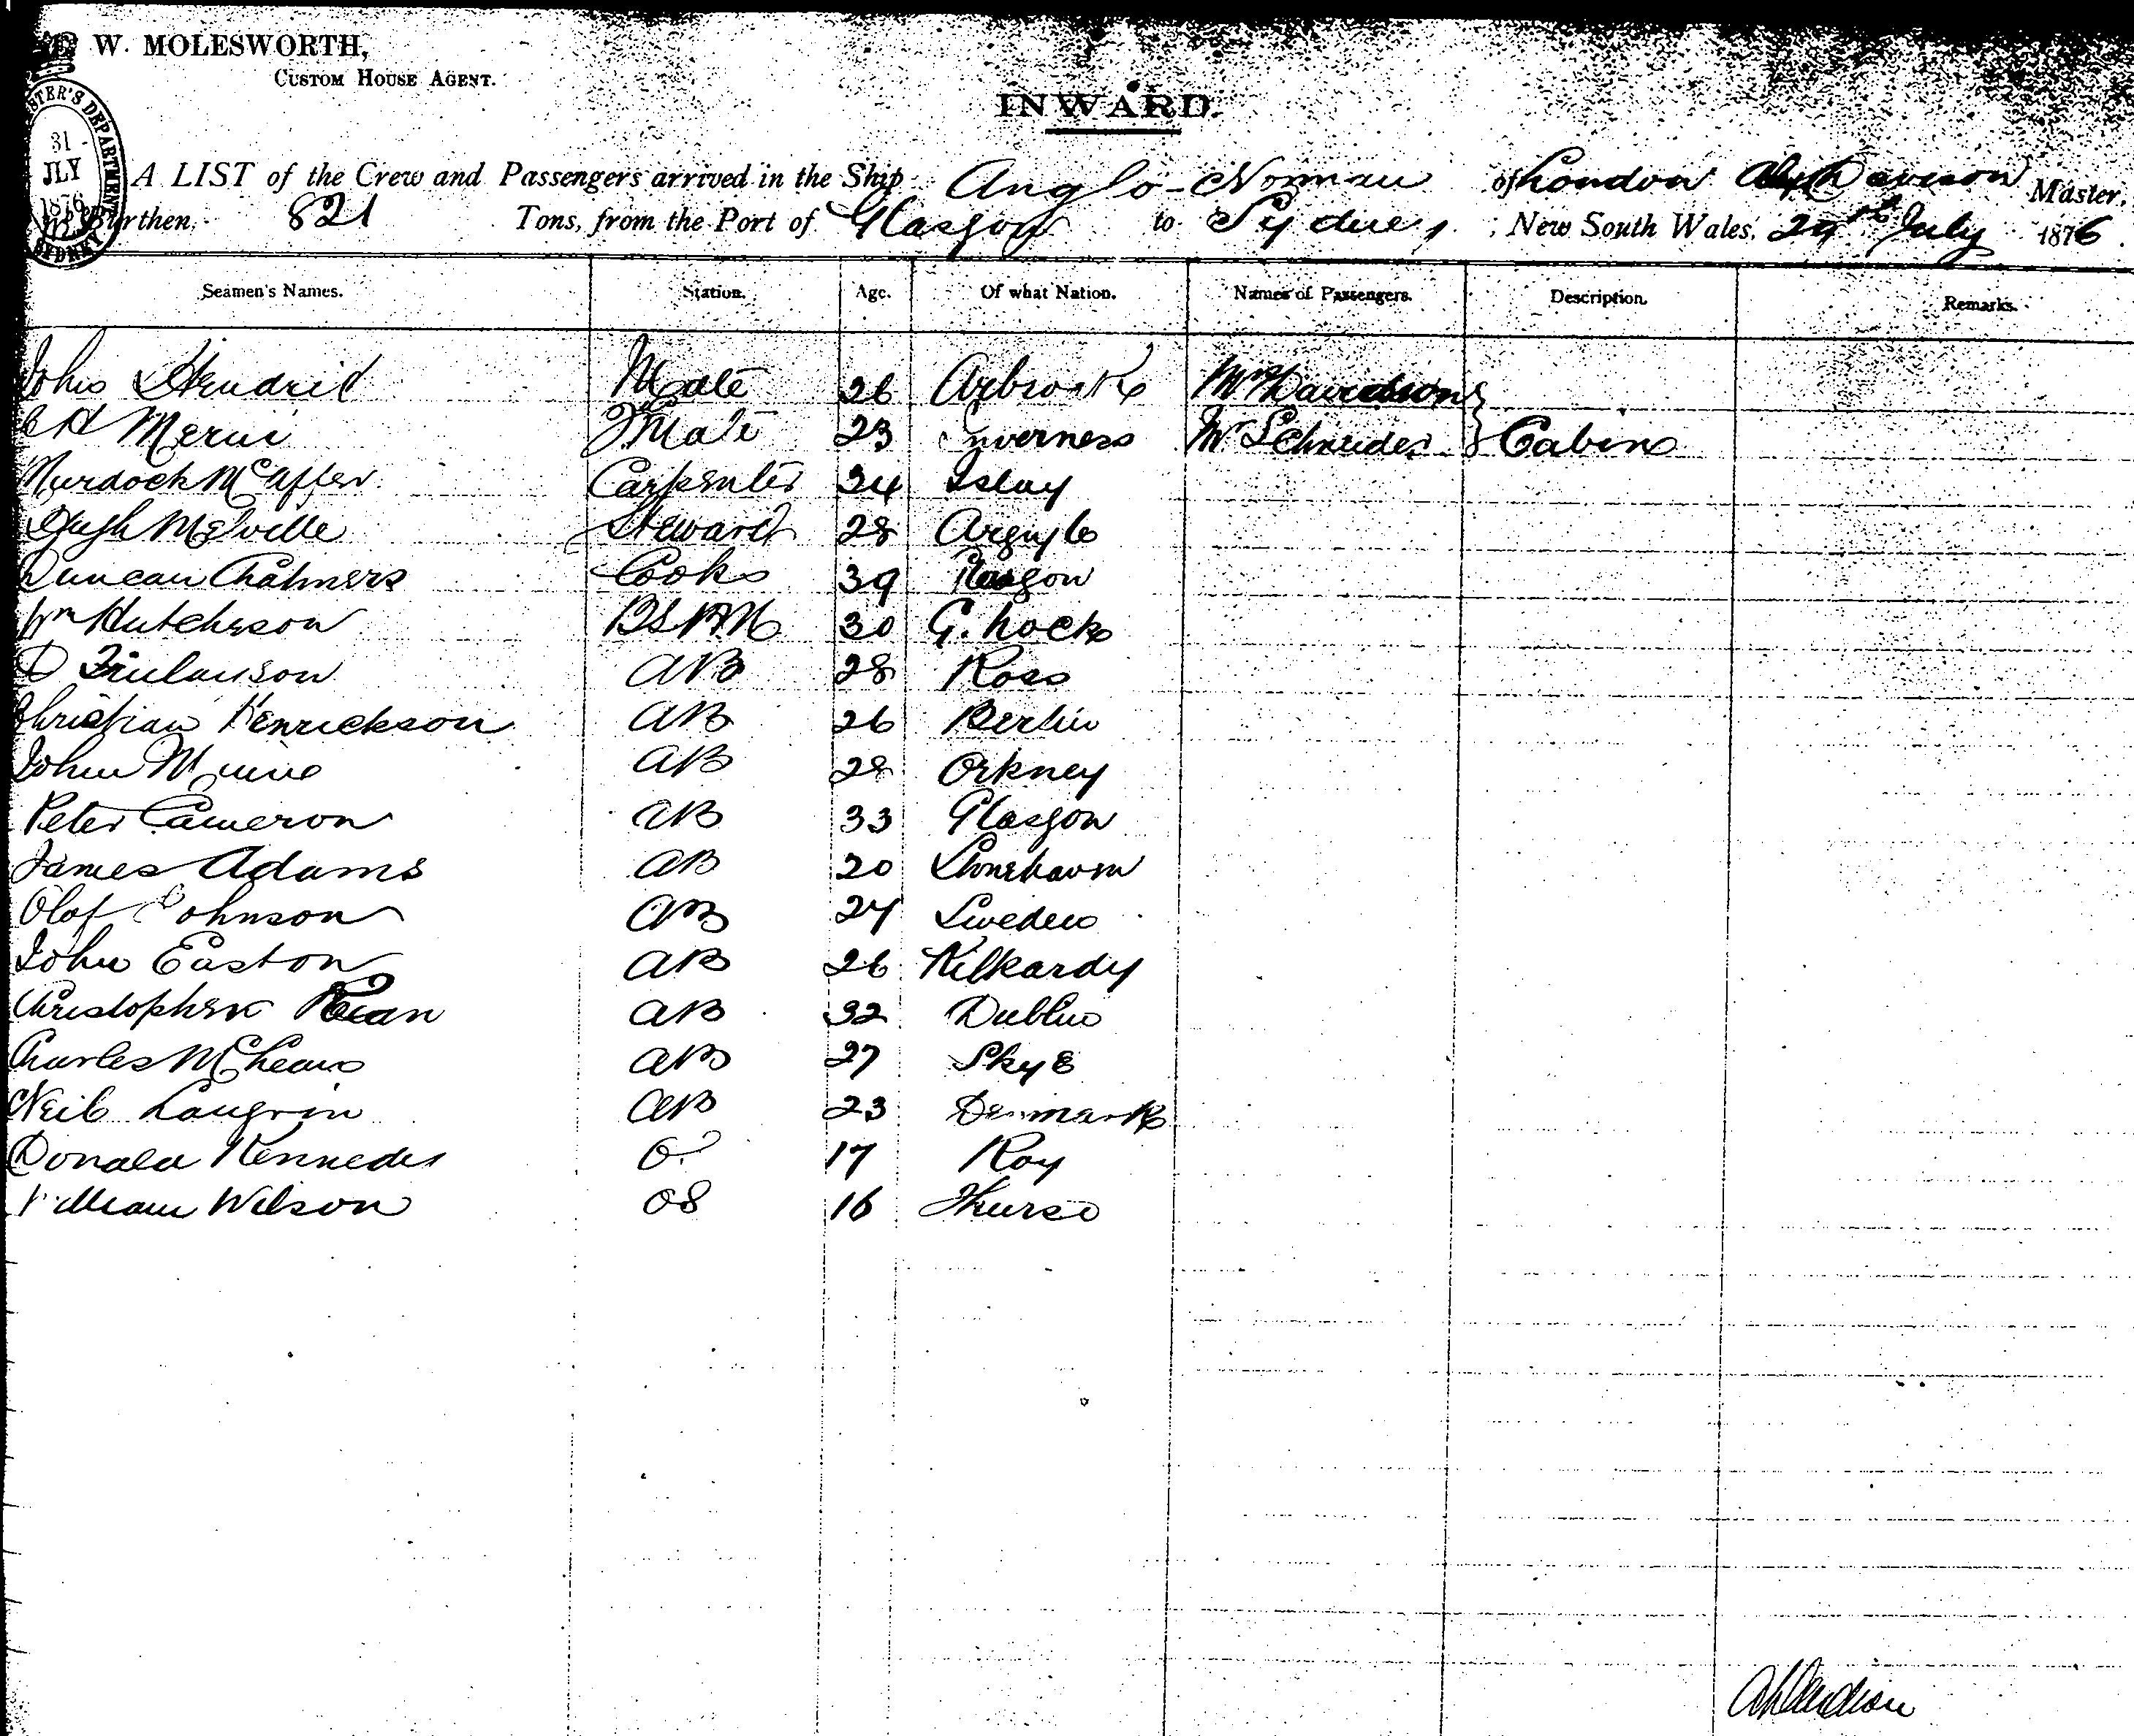 W. MOLESWORTH,
CUSTOM HOUSE AGENT.
31
JLY
1876
SYDNEY
INWARD.
A LIST of the Crew and Passengers arrived in the Ship Anglo-Norman of London Davison Master,
Burthen, 821 Tons, from the Port of Glasgow to Sydney, New South Wales, July 1876.
Seamen's Names. Station. Age. Of what Nation. Names of Passengers. Description. Remarks.
John Mate 26 Arbroath Mrs Davidson
Mate 23 Inverness Mr Schneider Cabin
Murdoch Carpenter 34 Islay
Hugh Melville Steward 28 Argyle
Duncan Chalmers Cook 39 Glasgow
Wm Hutcheson 30 G. nock
D Finlayson AB 28 Ross
Christian Henrickson AB 26 Berlin
John AB 28 Orkney
Peter Cameron AB 33 Glasgow
James Adams AB 20
Olaf Johnson AB 24 Sweden
John Easton AB 26 Kilkardy
Christopher AB 32 Dublin
Charles McLean AB 27 Skye
Neil AB 23 Denmark
Donald Kennedy 17 Roy
William Wilson OS 16 Thurso